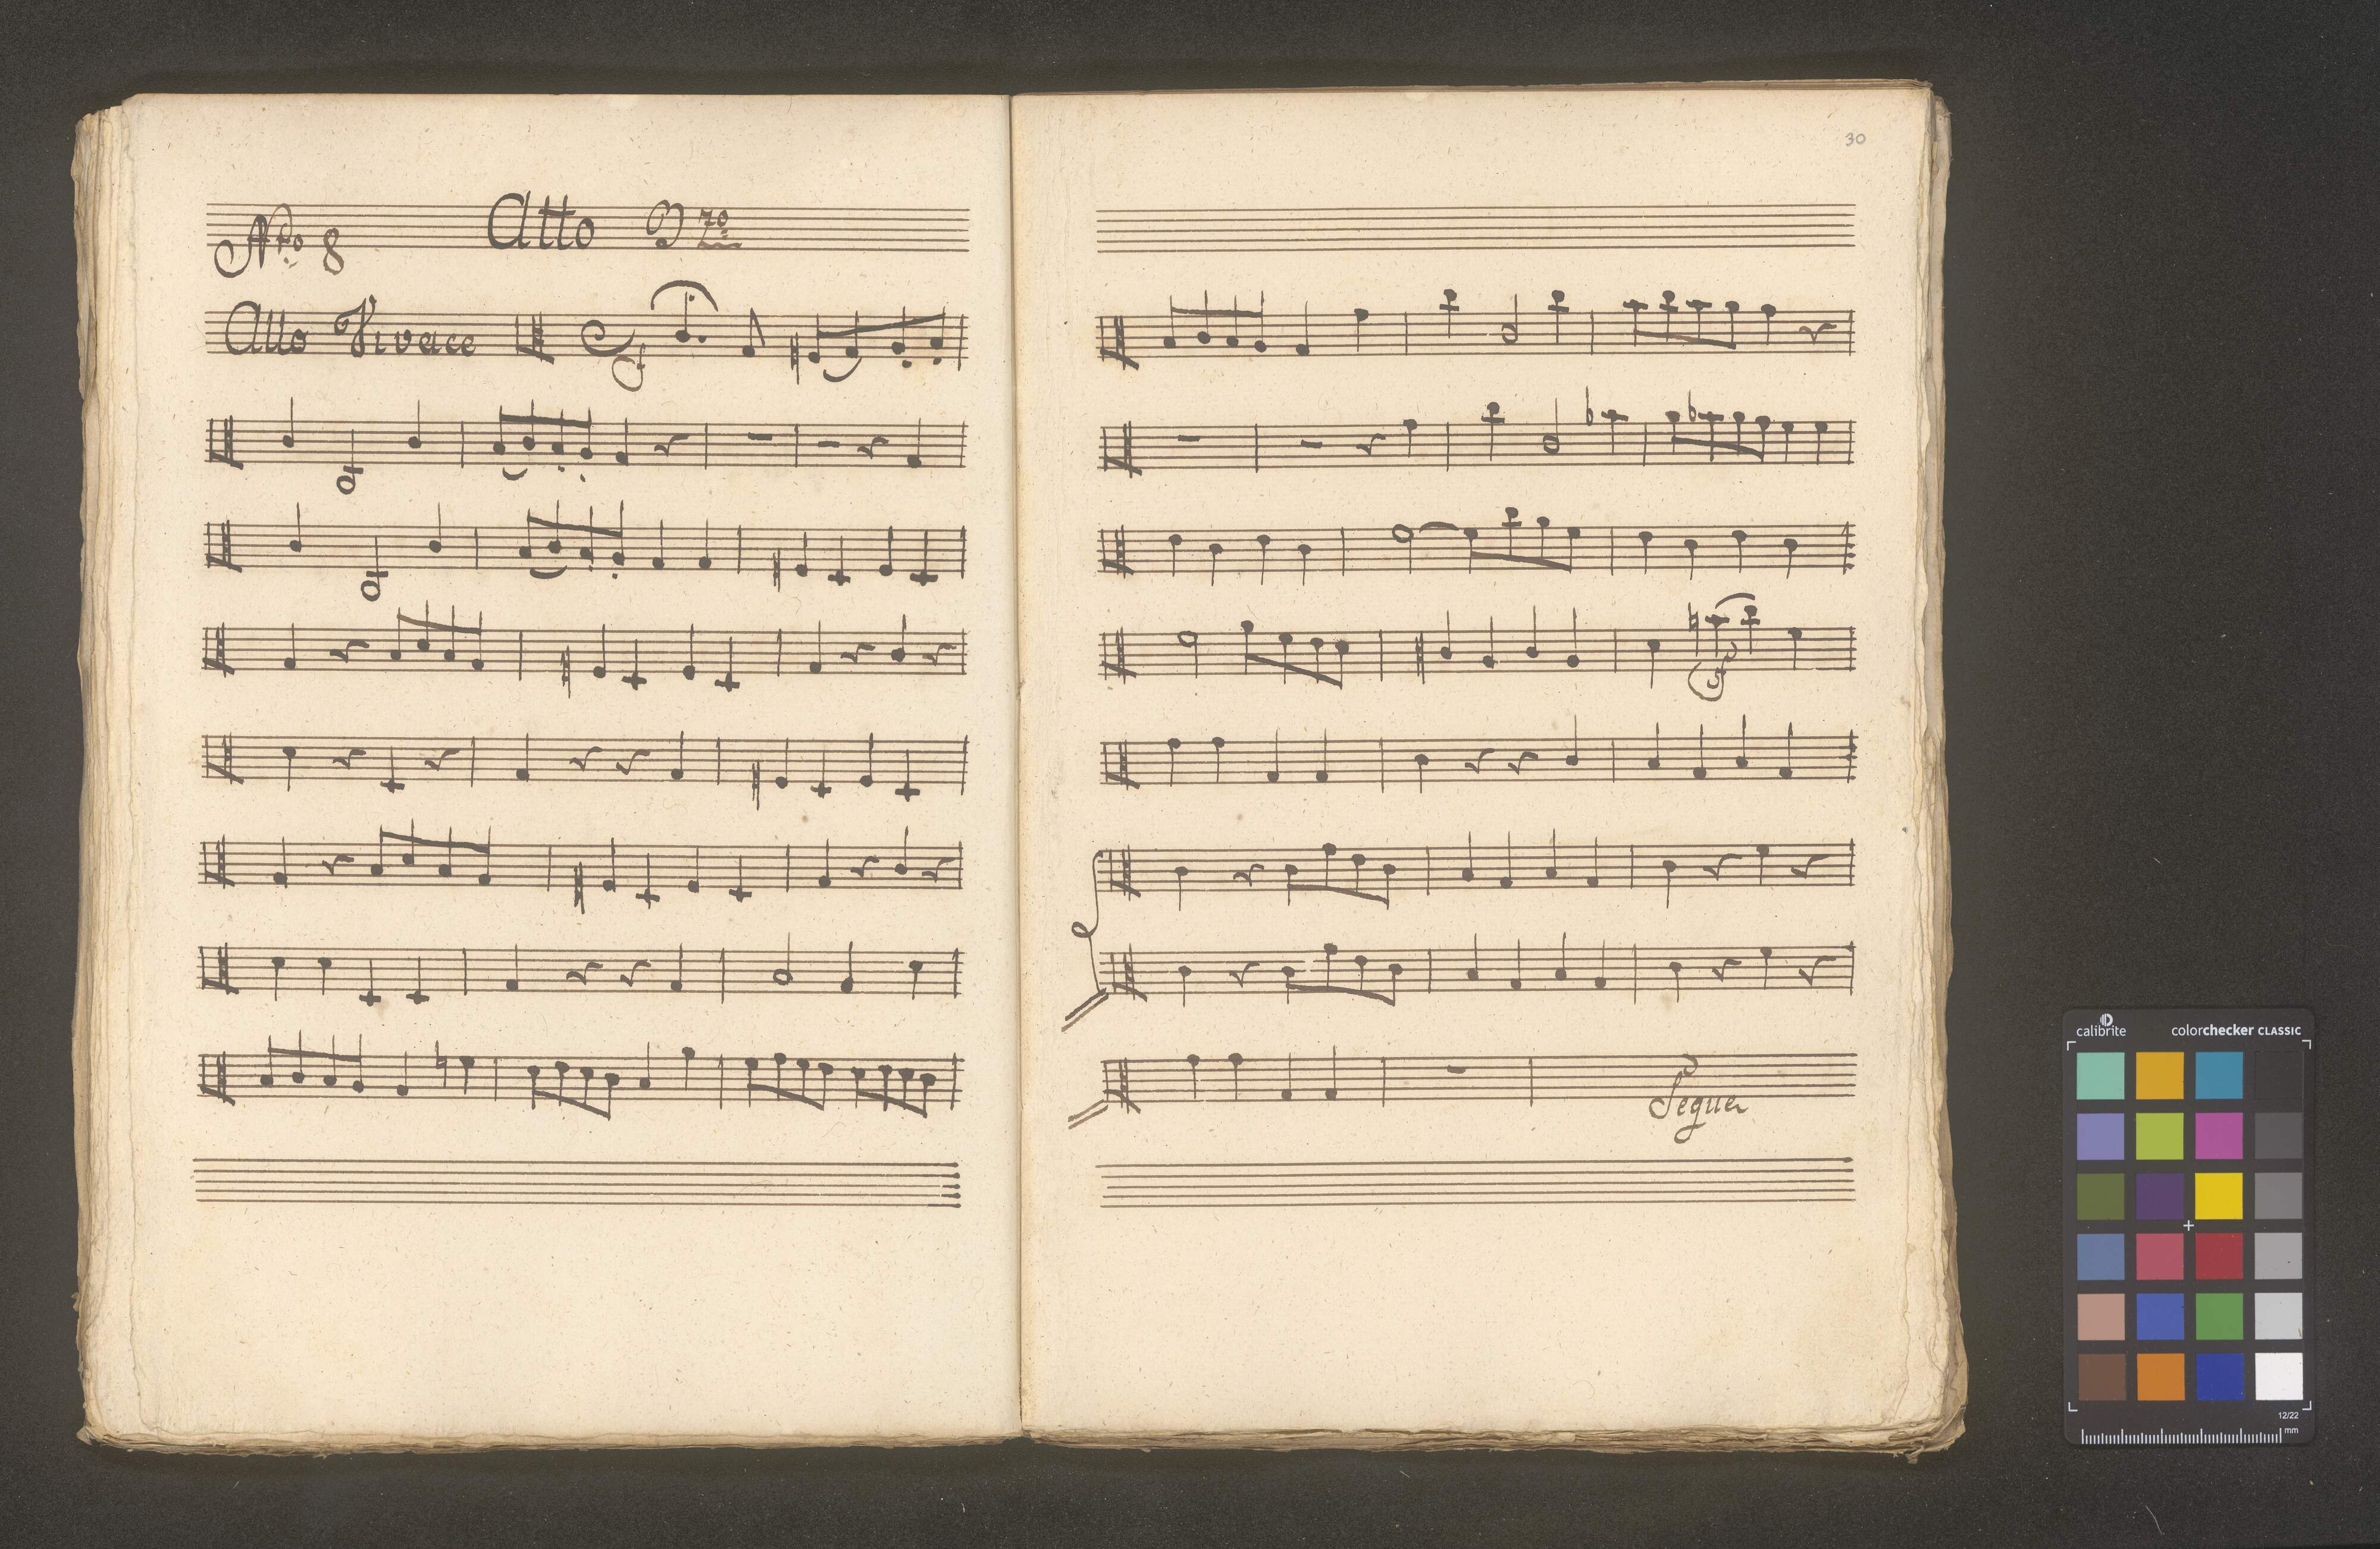 N.ro 8 Atto
Allo Vivace
30
Segue
calibrite colorchecker CLASSIC
12/22
mm